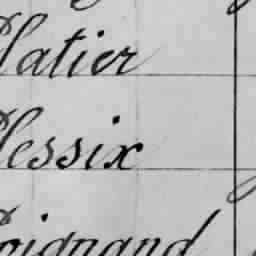 Platier
Plessix
Poignand